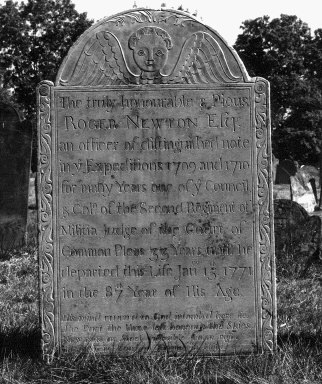 The truly honourable & Pious
ROGER NEWTON Esq.
an officer of distinguished note
in yͤ Expeditions 1709 and 1710
for many Years one of yͤ Council
& Colo. of the Second Regiment of
Militia Judge of the Court of
Common Pleas 33 Years till he
departed this Life Jan 15 1771
in the 87 Year of His Age.